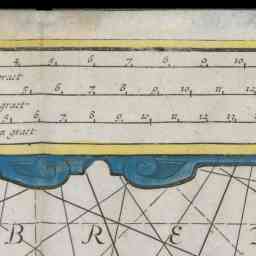 4. 5. 6. 7. 8. 9. 10.
graet
5. 6. 7. 8. 9. 10. 11. 12.
graet
5. 6. 7. 8. 9. 10. 11. 12. 13.
n graet
B R E